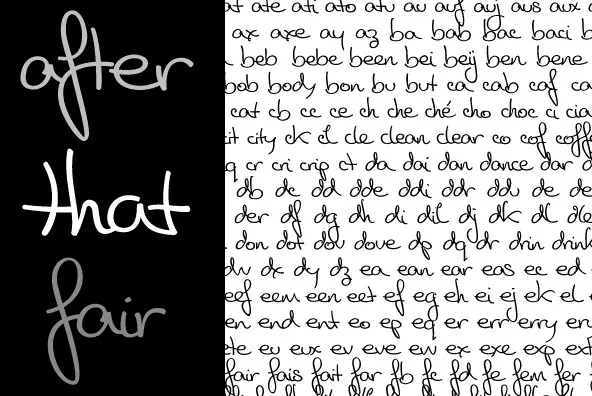 after
that
fair
at ate ati ato atu au auf auj aus aux
ax axe ay az ba bab bac baci
beb bebe been bei beij ben bene
bob body bon bu but ca cab caf
cat cb cc ce ch che ché cho choc ci cia
city ck cl cle clean clear co cof coff
cr cri crip ct da dai dan dance dar
db dc dd dde ddi ddr ddu de de
der df dg dh di dil dj dk dl dle
don dot dou dove dp dq dr drin drink
dw dx dy dz ea ean ear eas ec ed
eef eem een eet ef eg eh ei ej ek el
en end ent eo ep eq er err erry
ete eu eux ev eve ew ex exe exp ext
fair fais fait far fb fc fd fe fem fer